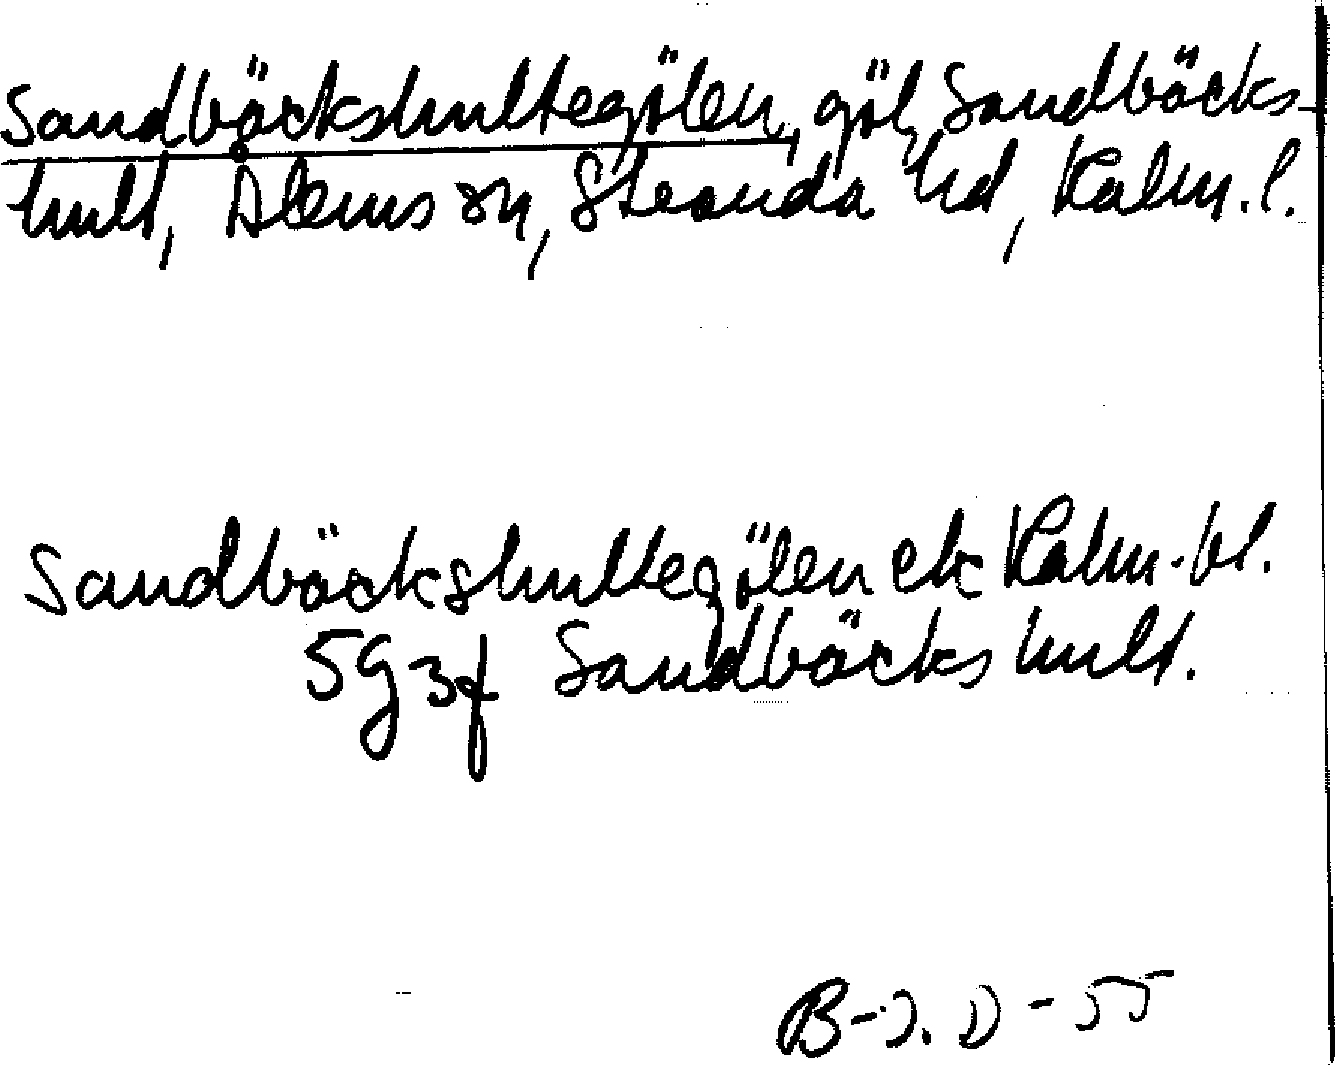 Sandbäckshultegölen, göl, Sandbäcks-
hult, Ålems sn, Stranda hd, Kalm. l.
Sandbäckshultegölen ek Kalm. bl.
5g3f Sandbäckshult.
B-J. D -55